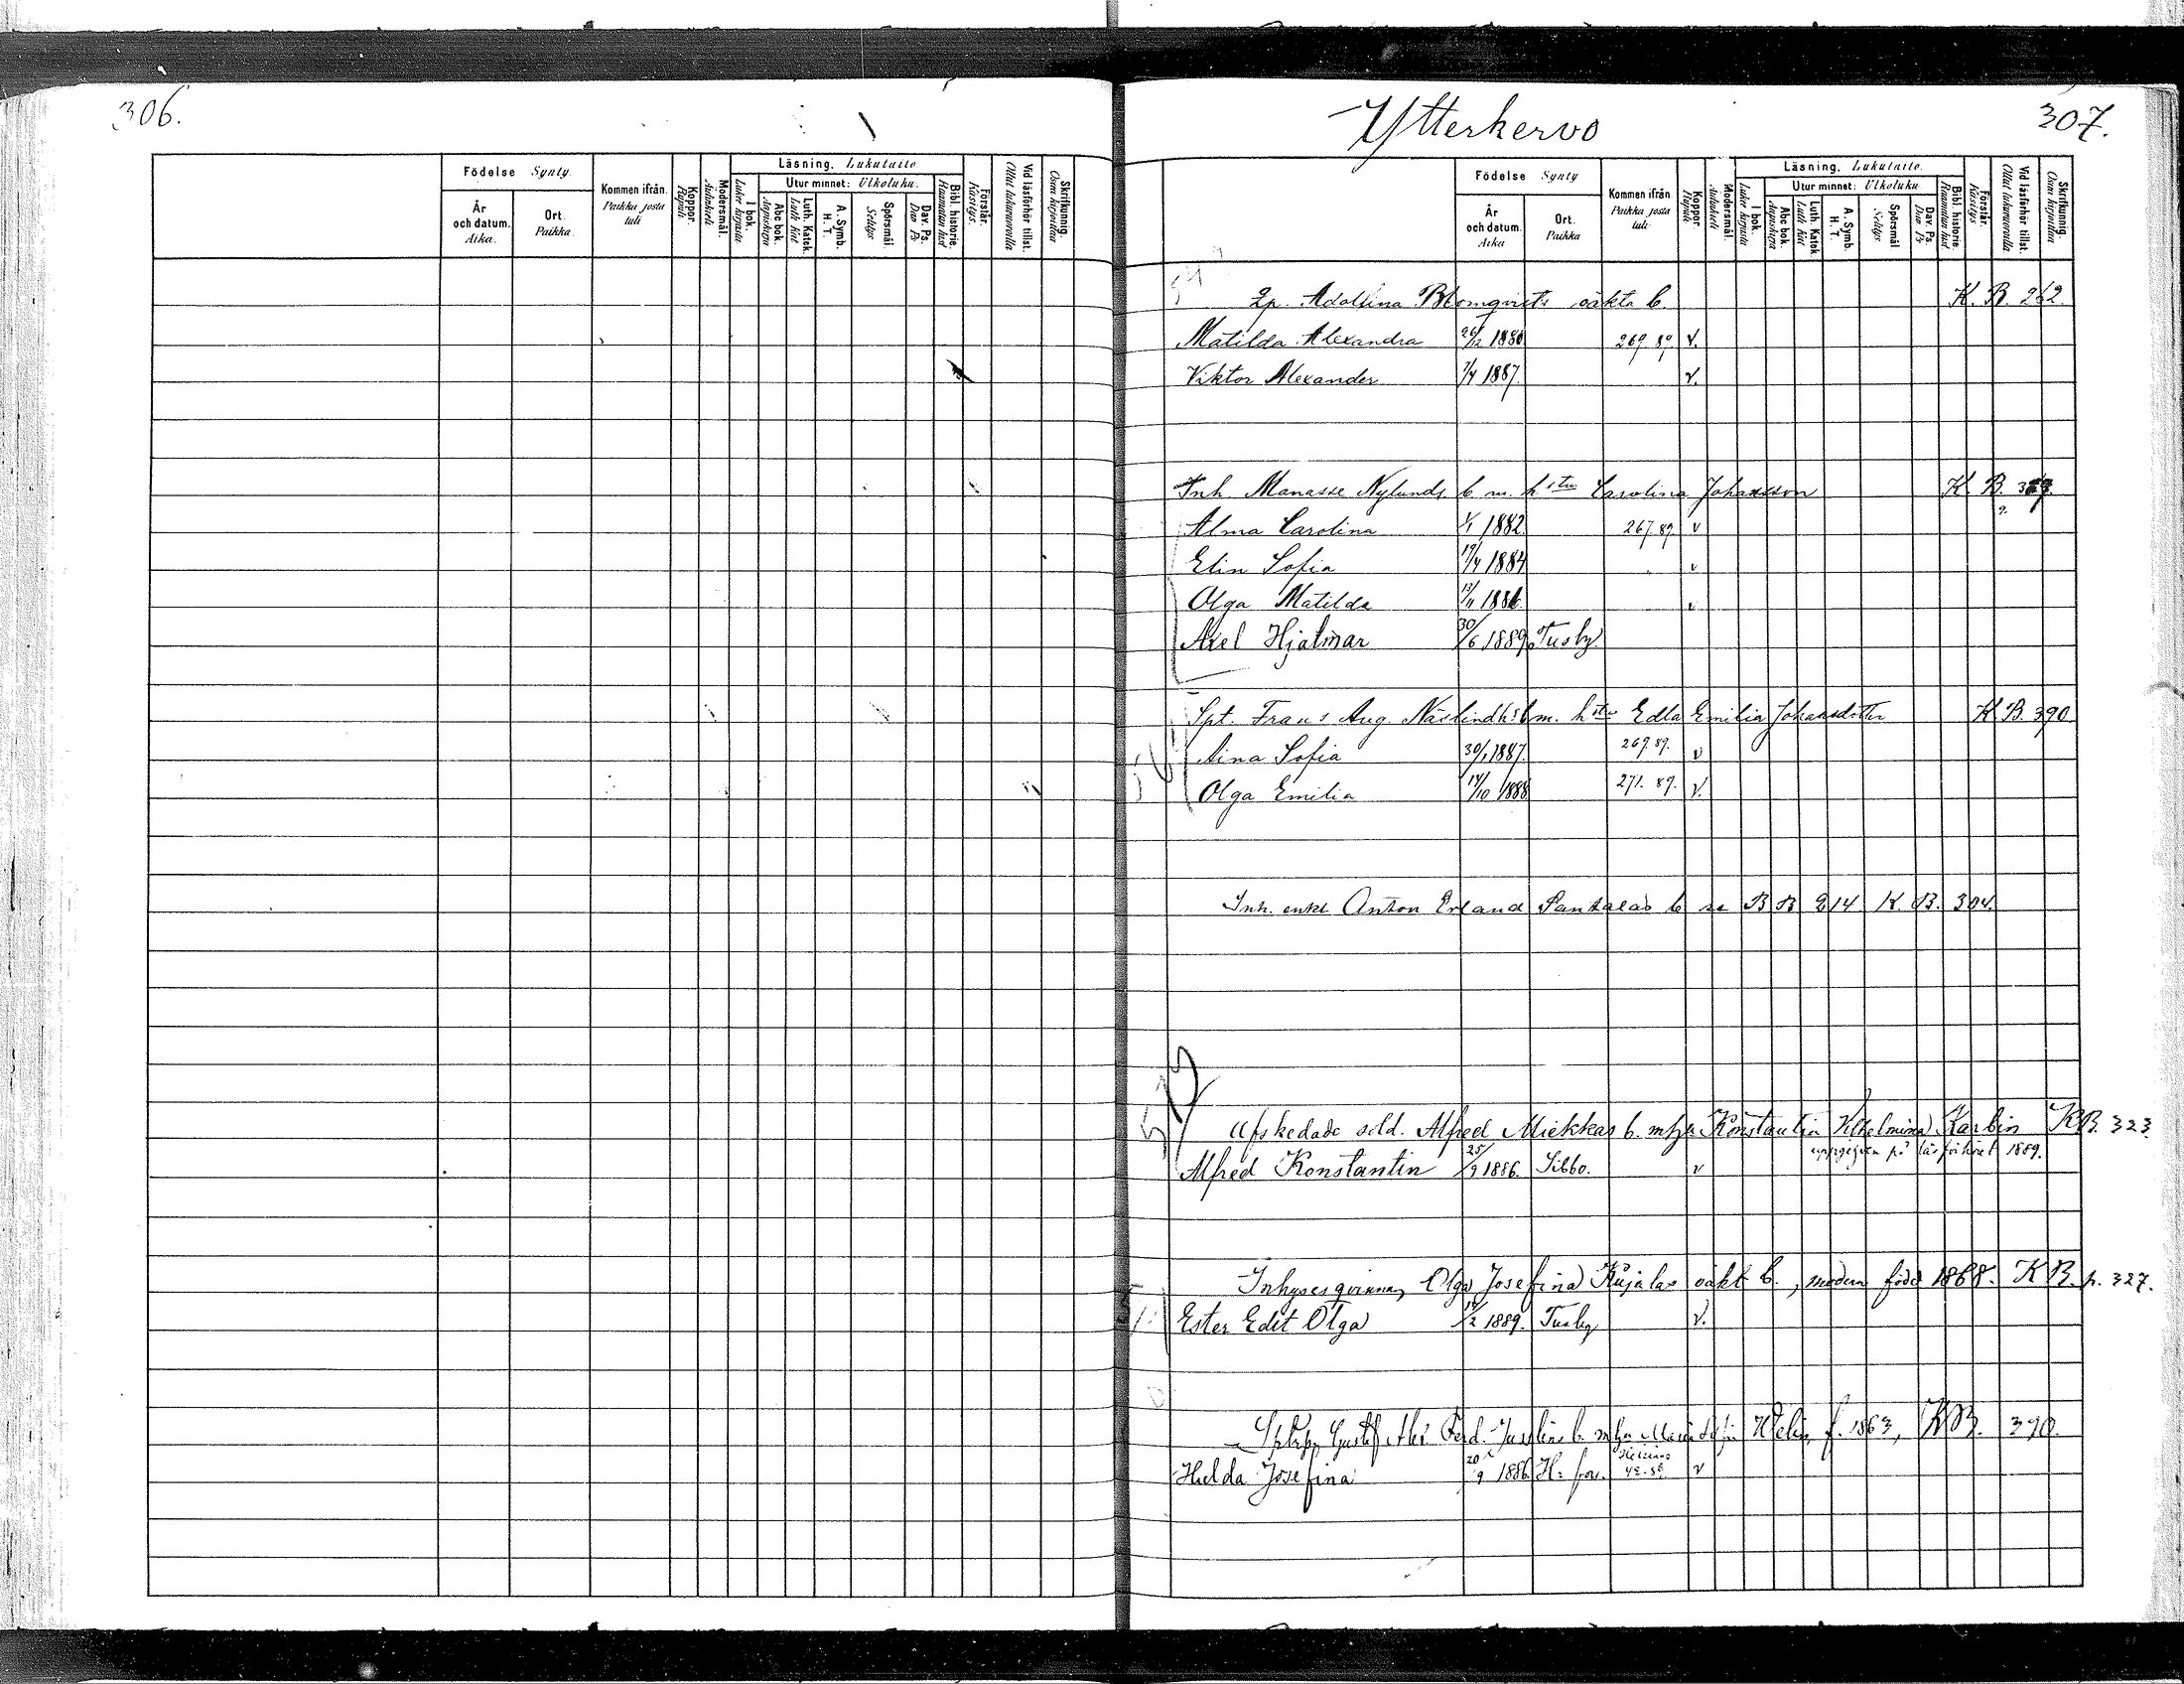 306.
Födelse Synty.
År och datum. Aika.
Ort. Paikka.
Kommen ifrån. Paikka josta tuli
Koppor. Rupuli
Modersmål. Äidinkieli
Läsning. Lukutaito
I bok. Lukee kirjasta
Utur minnet: Ulkoluku.
Abc bok. Aapiskirja
Luth. Katek. Luth. Kat
A. Symb. H. T.
Spörsmål. Selitys
Dav. Ps. Dav Ps
Bibl. historie. Raamatun hist
Förstår. Käsitys.
Vid läsförhör. tillst. Ollut lukuvuorolla
Skrifkunnig. Osaa kirjoittaa
Ytterkervo
307.
Födelse Synty
År och datum. Aika
Ort. Paikka
Kommen ifrån Paikka josta tuli
Koppor. Rupuli
Modersmål. Äidinkieli
Läsning. Lukutaito.
I bok. Lukee kirjasta
Utur minnet: Ulkoluku
Abc bok. Aapiskirja
Luth. Katek Luth Kat
A. Symb. H. T.
Spörsmål Selitys
Dav. Ps. Dav Ps
Bibl. historie. Raamatun hist
Förstår. Käsitys
Vid läsförhör. tillst. Ollut lukuvuorolla
Skrifkunnig. Osaa kirjoittaa
Adolfina Blomqvists oäkta b. K. B. 262.
Matilda Alexandra 26/12 1880 269 89 v.
Viktor Alexander 7/4 1887. v.
Inh Manasse Nylunds b. m. hstru Carolina Johansson K. B.
Alma Carolina 1/1 1882. 267. 89. v
Elin Sofia 19/4 1884 v
Olga Matilda 13/11 1886. v
Axel Hjalmar 30/6 1889. Tusby.
Spt. Frans Aug. b m. hstru Edla Emilia Johansdotter K B. 390
Aina Sofia 30/1 1887. 269. 89. v
Olga Emilia 14/10 1888 271. 89. v.
Inh. enkl Anton Erland b se B B 214 K. B. 304.
Afskedade sold. Alfred Miekkas b. m hu Konstantia Vilhelmina Karlin KB. 323.
uppgifven på läsförhöret 1889.
Alfred Konstantin 25/9 1886. Sibbo. v
Inhysesqvinnan Olga Josefina Kujalas oäkt b., modern född 1868. K B. p. 327.
Ester Edit Olga /2 1889. Tusby v.
Gustaf Ferd. b. m hu Maria f. 1863, KB. 390.
Hulda Josefina 20/9 1886. H:fors. v